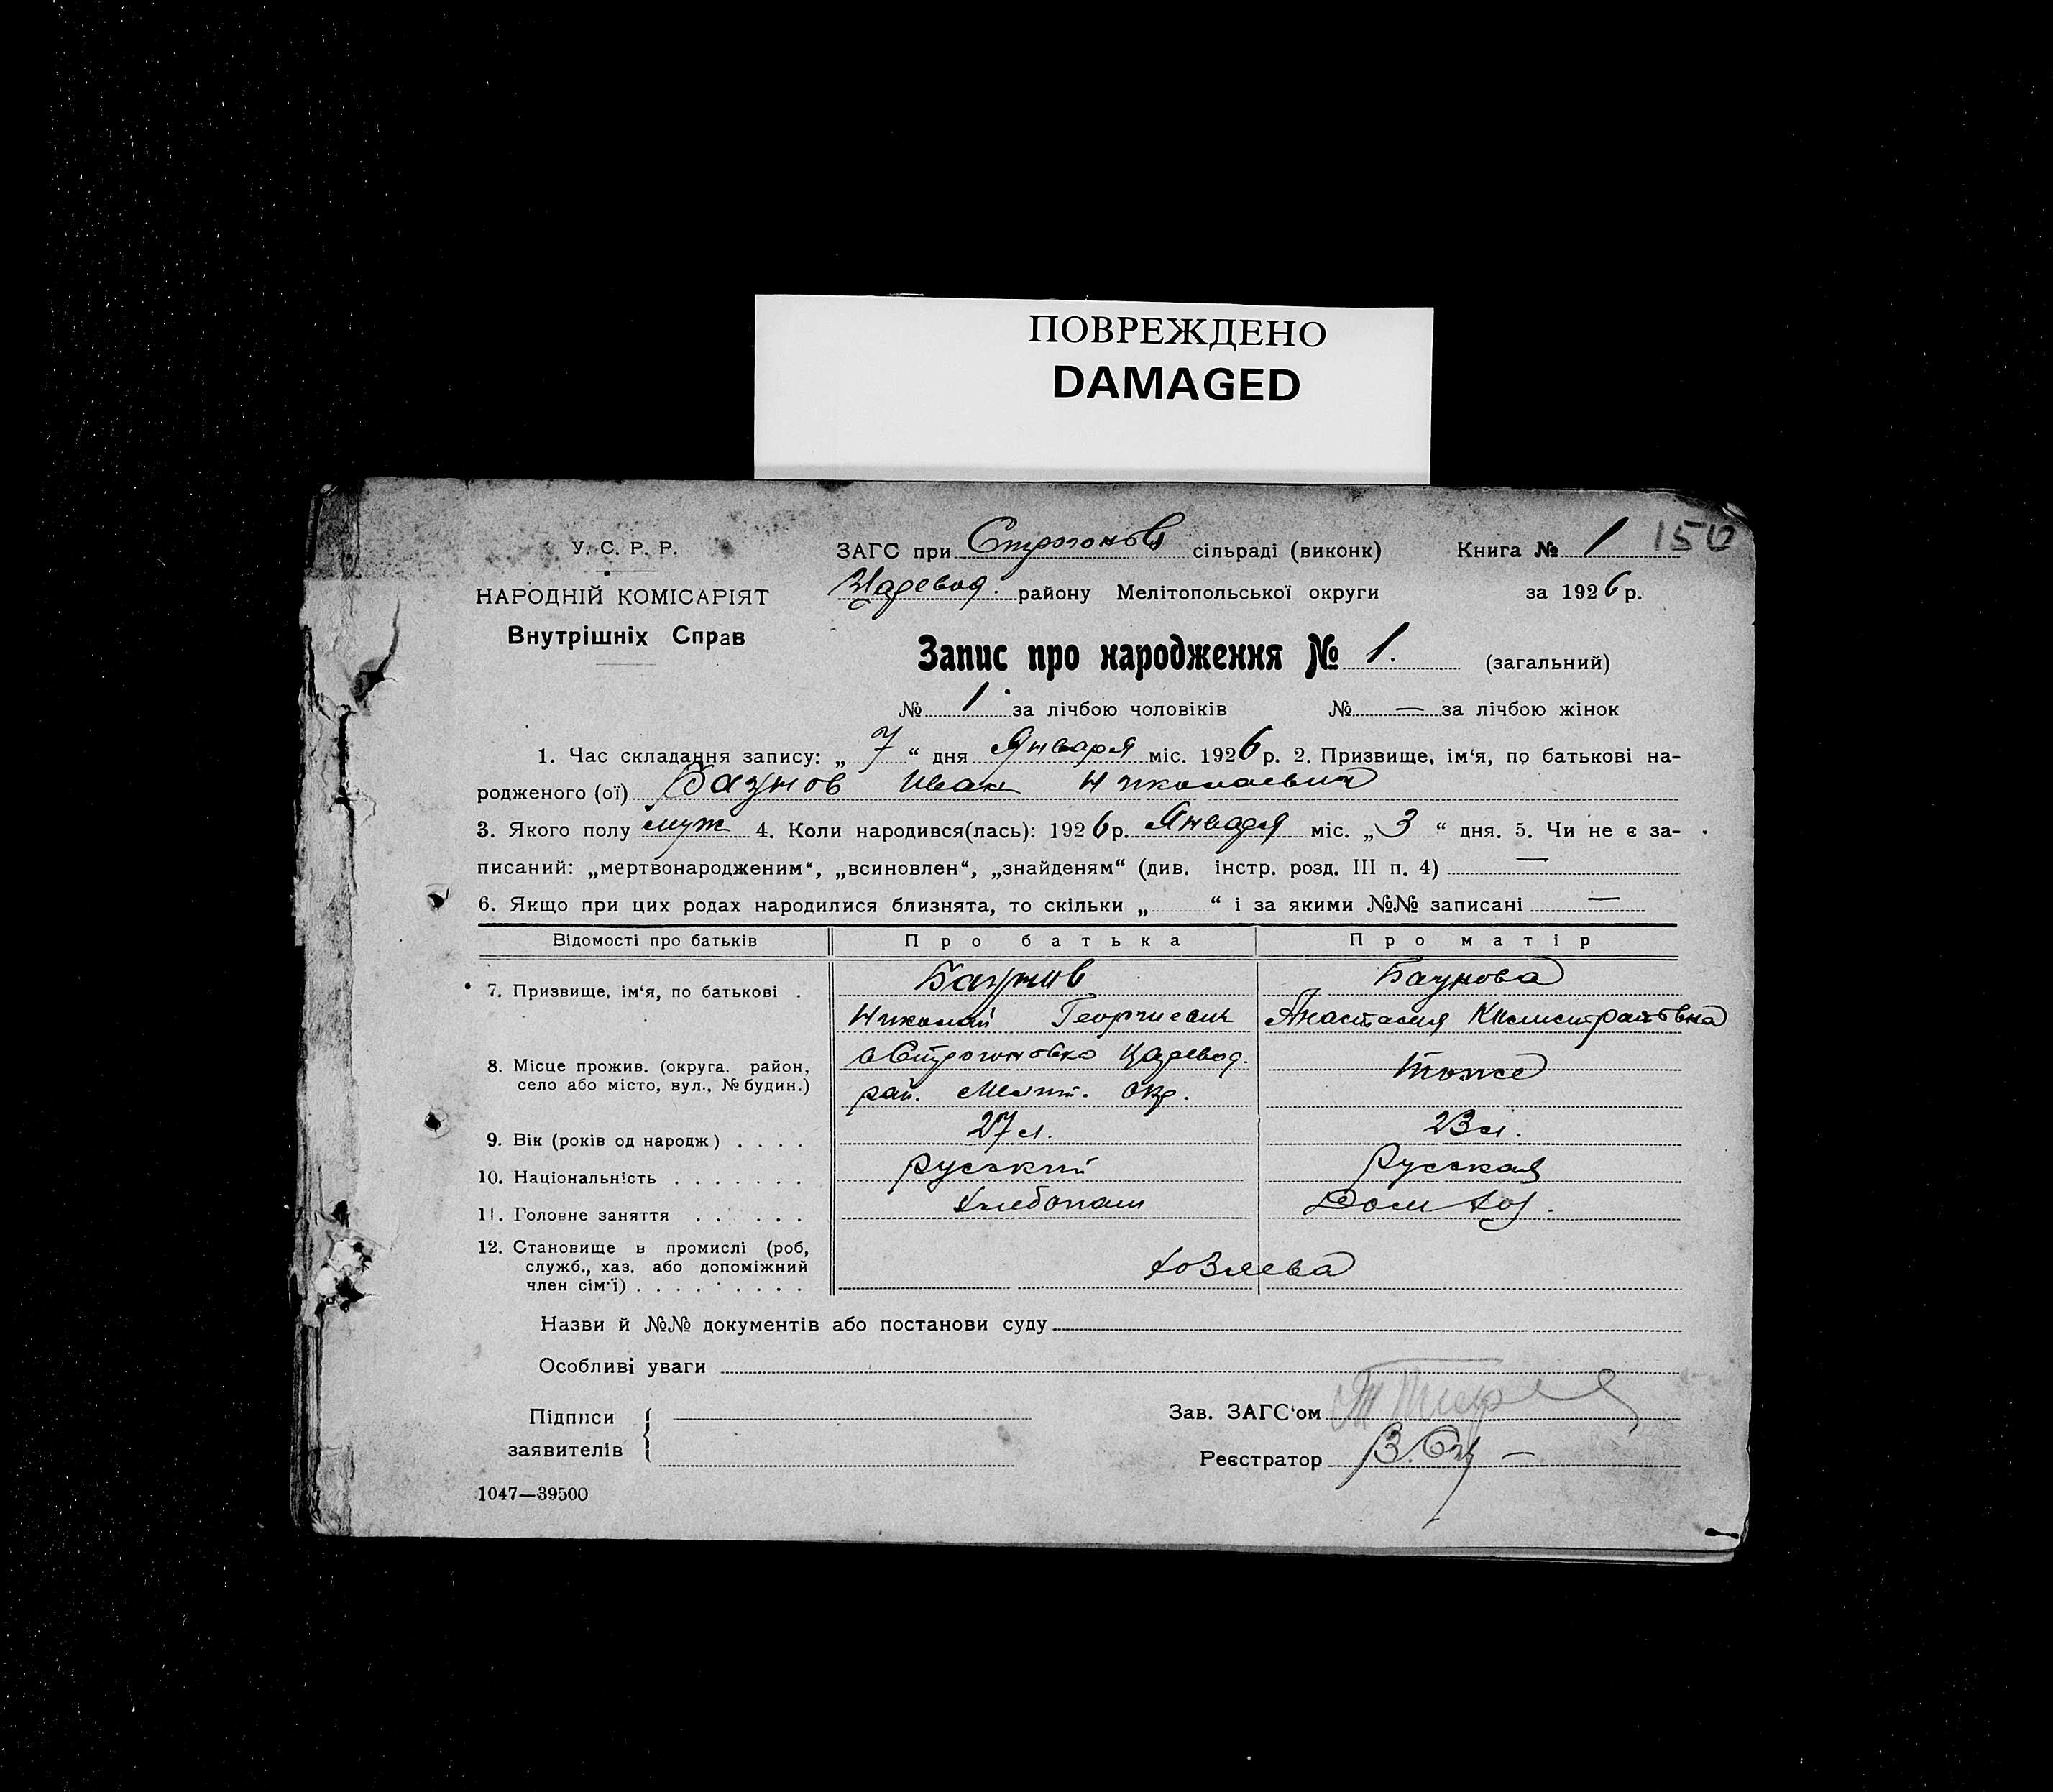 ПОВРЕЖДЕНО
DAMAGED
У. С. Р. Р.
НАРОДНІЙ КОМІСАРІЯТ
Внутрішніх Справ
ЗАГС при Строгонов сільраді (виконк) Книга № 1 150
Царевод. району Мелітопольської округи за 1926 р.
Запис про народження № 1. (загальний)
№ 1 за лічбою чоловіків № — за лічбою жінок
1. Час складання запису: „ 7 “ дня Января міс. 1926 р. 2. Призвище, ім'я, по батькові на-
родженого (ої) Баунов Иван Николаевич
3. Якого полу муж 4. Коли народився(лась): 1926 р. Января міс. „ 3 “ дня. 5. Чи не є за-
писаний: „мертвонародженим“, „всиновлен“, „знайденям“ (див. інстр. розд. III п. 4) —
6. Якщо при цих родах народилися близнята, то скільки „ “ і за якими №№ записані —
Відомості про батьків Про батька Про матір
7. Призвище, ім'я, по батькові . Баунов Баунова
Николай Георгиевич Анастасия
8. Місце прожив. (округа. район, село або місто, вул., № будин.) с Строгоновка Царевод. Тоже
рай. Мелит. Окр.
9. Вік (років од народж) . . . . 27 л. 23 л.
10. Національність . . . . . . . русский Русская
11. Головне заняття . . . . . . Хлебопаш Дом Хоз.
12. Становище в промислі (роб,
служб., хаз. або допоміжний
член сім'ї) . . . . . . . . . Хозяева
Назви й №№ документів або постанови суду
Особливі уваги
Підписи
заявителів
Зав. ЗАГС'ом
Реєстратор
1047—39500